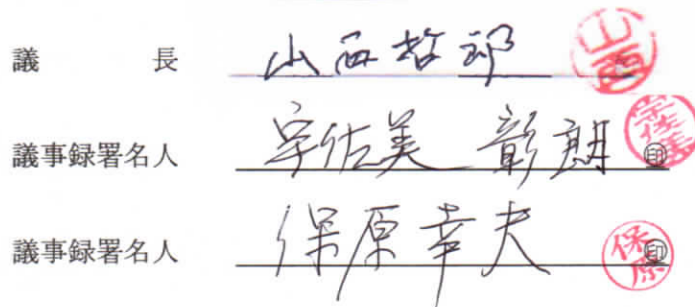 議長 山西哲郎 山西
議事録署名人 宇佐美 彰朗 ㊞ 宇佐美
議事録署名人 保原幸夫 ㊞ 保原